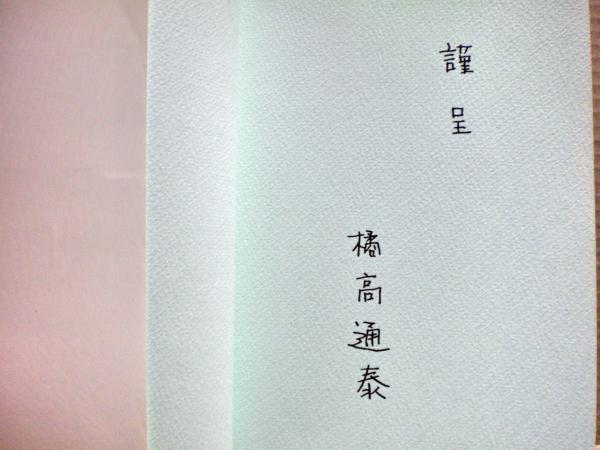 謹呈
橘高通泰